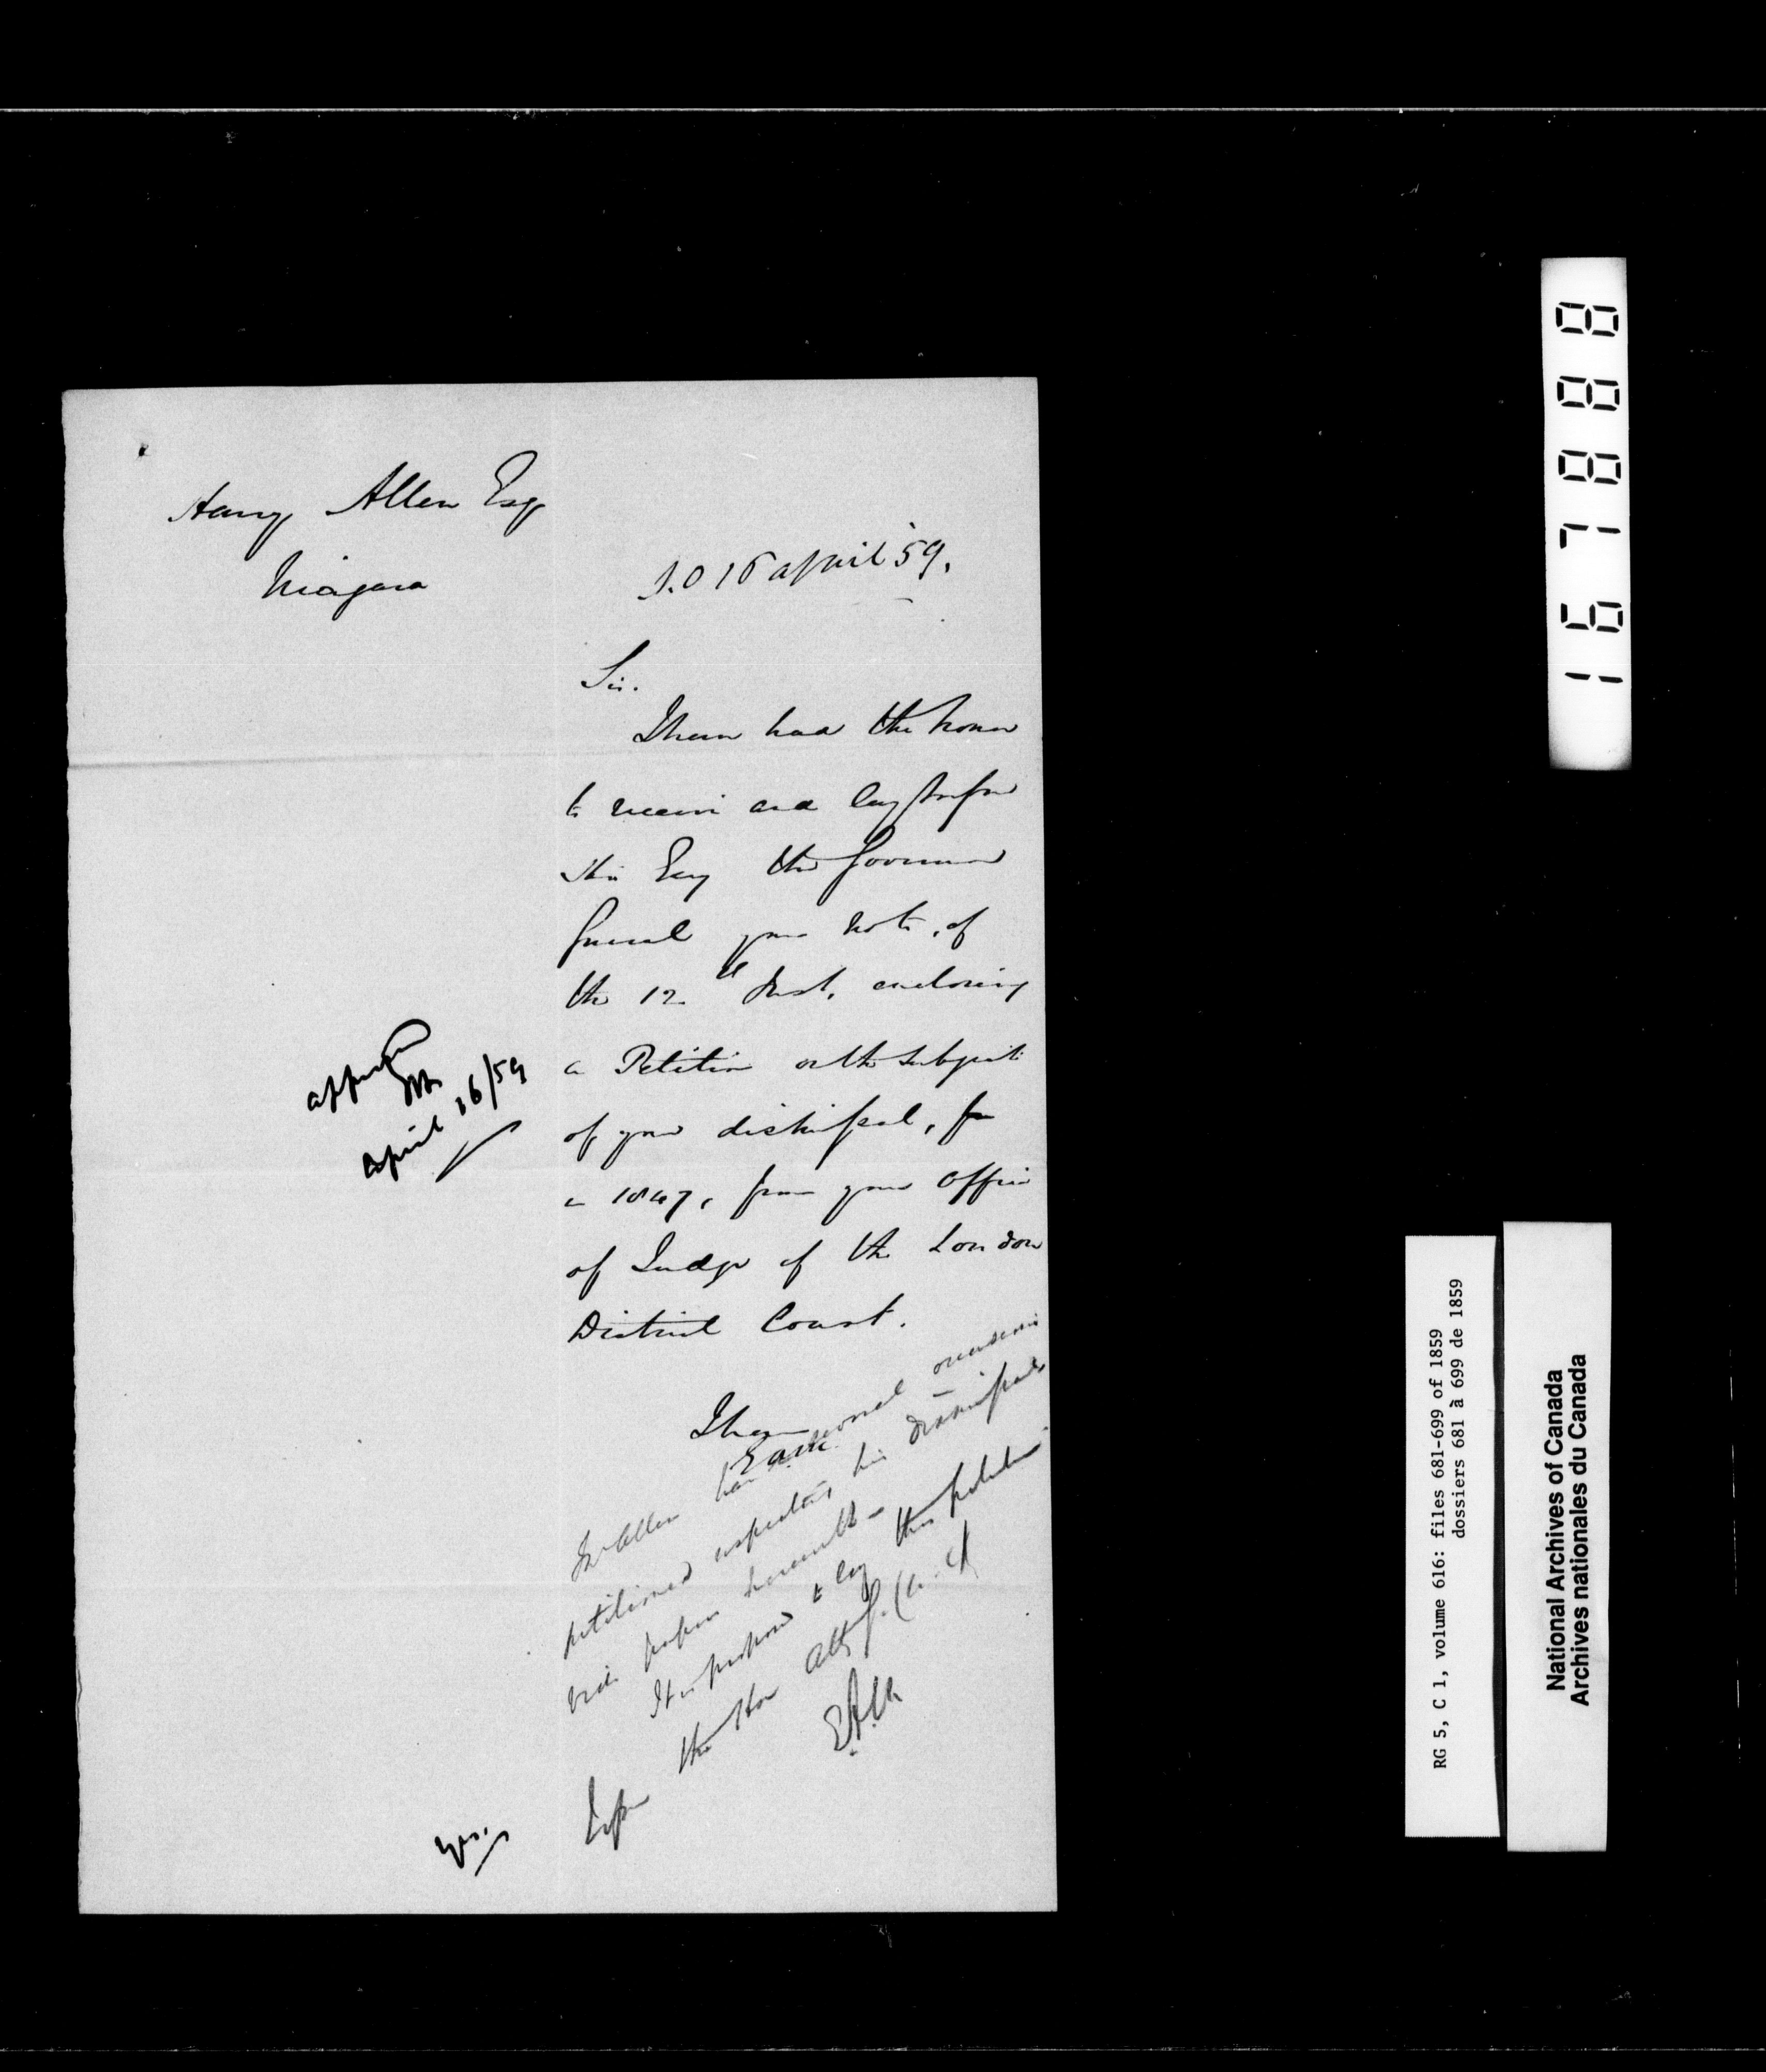 Harry Allen Esq
Niagara
S.O 16 April '59.
Sir.
I have had the honor
to receive and lay before
His Exy the Governor
General your note, of
the 12th Inst. enclosing
a Petition on the subject
of your dismissal,
in 1847, from your Office
of Judge of the London
District Court.
I have
April 16/59
Mr Allen has on several occasions
petitioned respecting his dismissal,
vide papers herewith -
It is proposed to lay this petition
before the Hon Atty G. (C.W.)
EAM
167888
RG 5, C 1, volume 616: files 681-699 of 1859
dossiers 681 à 699 de 1859
National Archives of Canada
Archives nationales du Canada